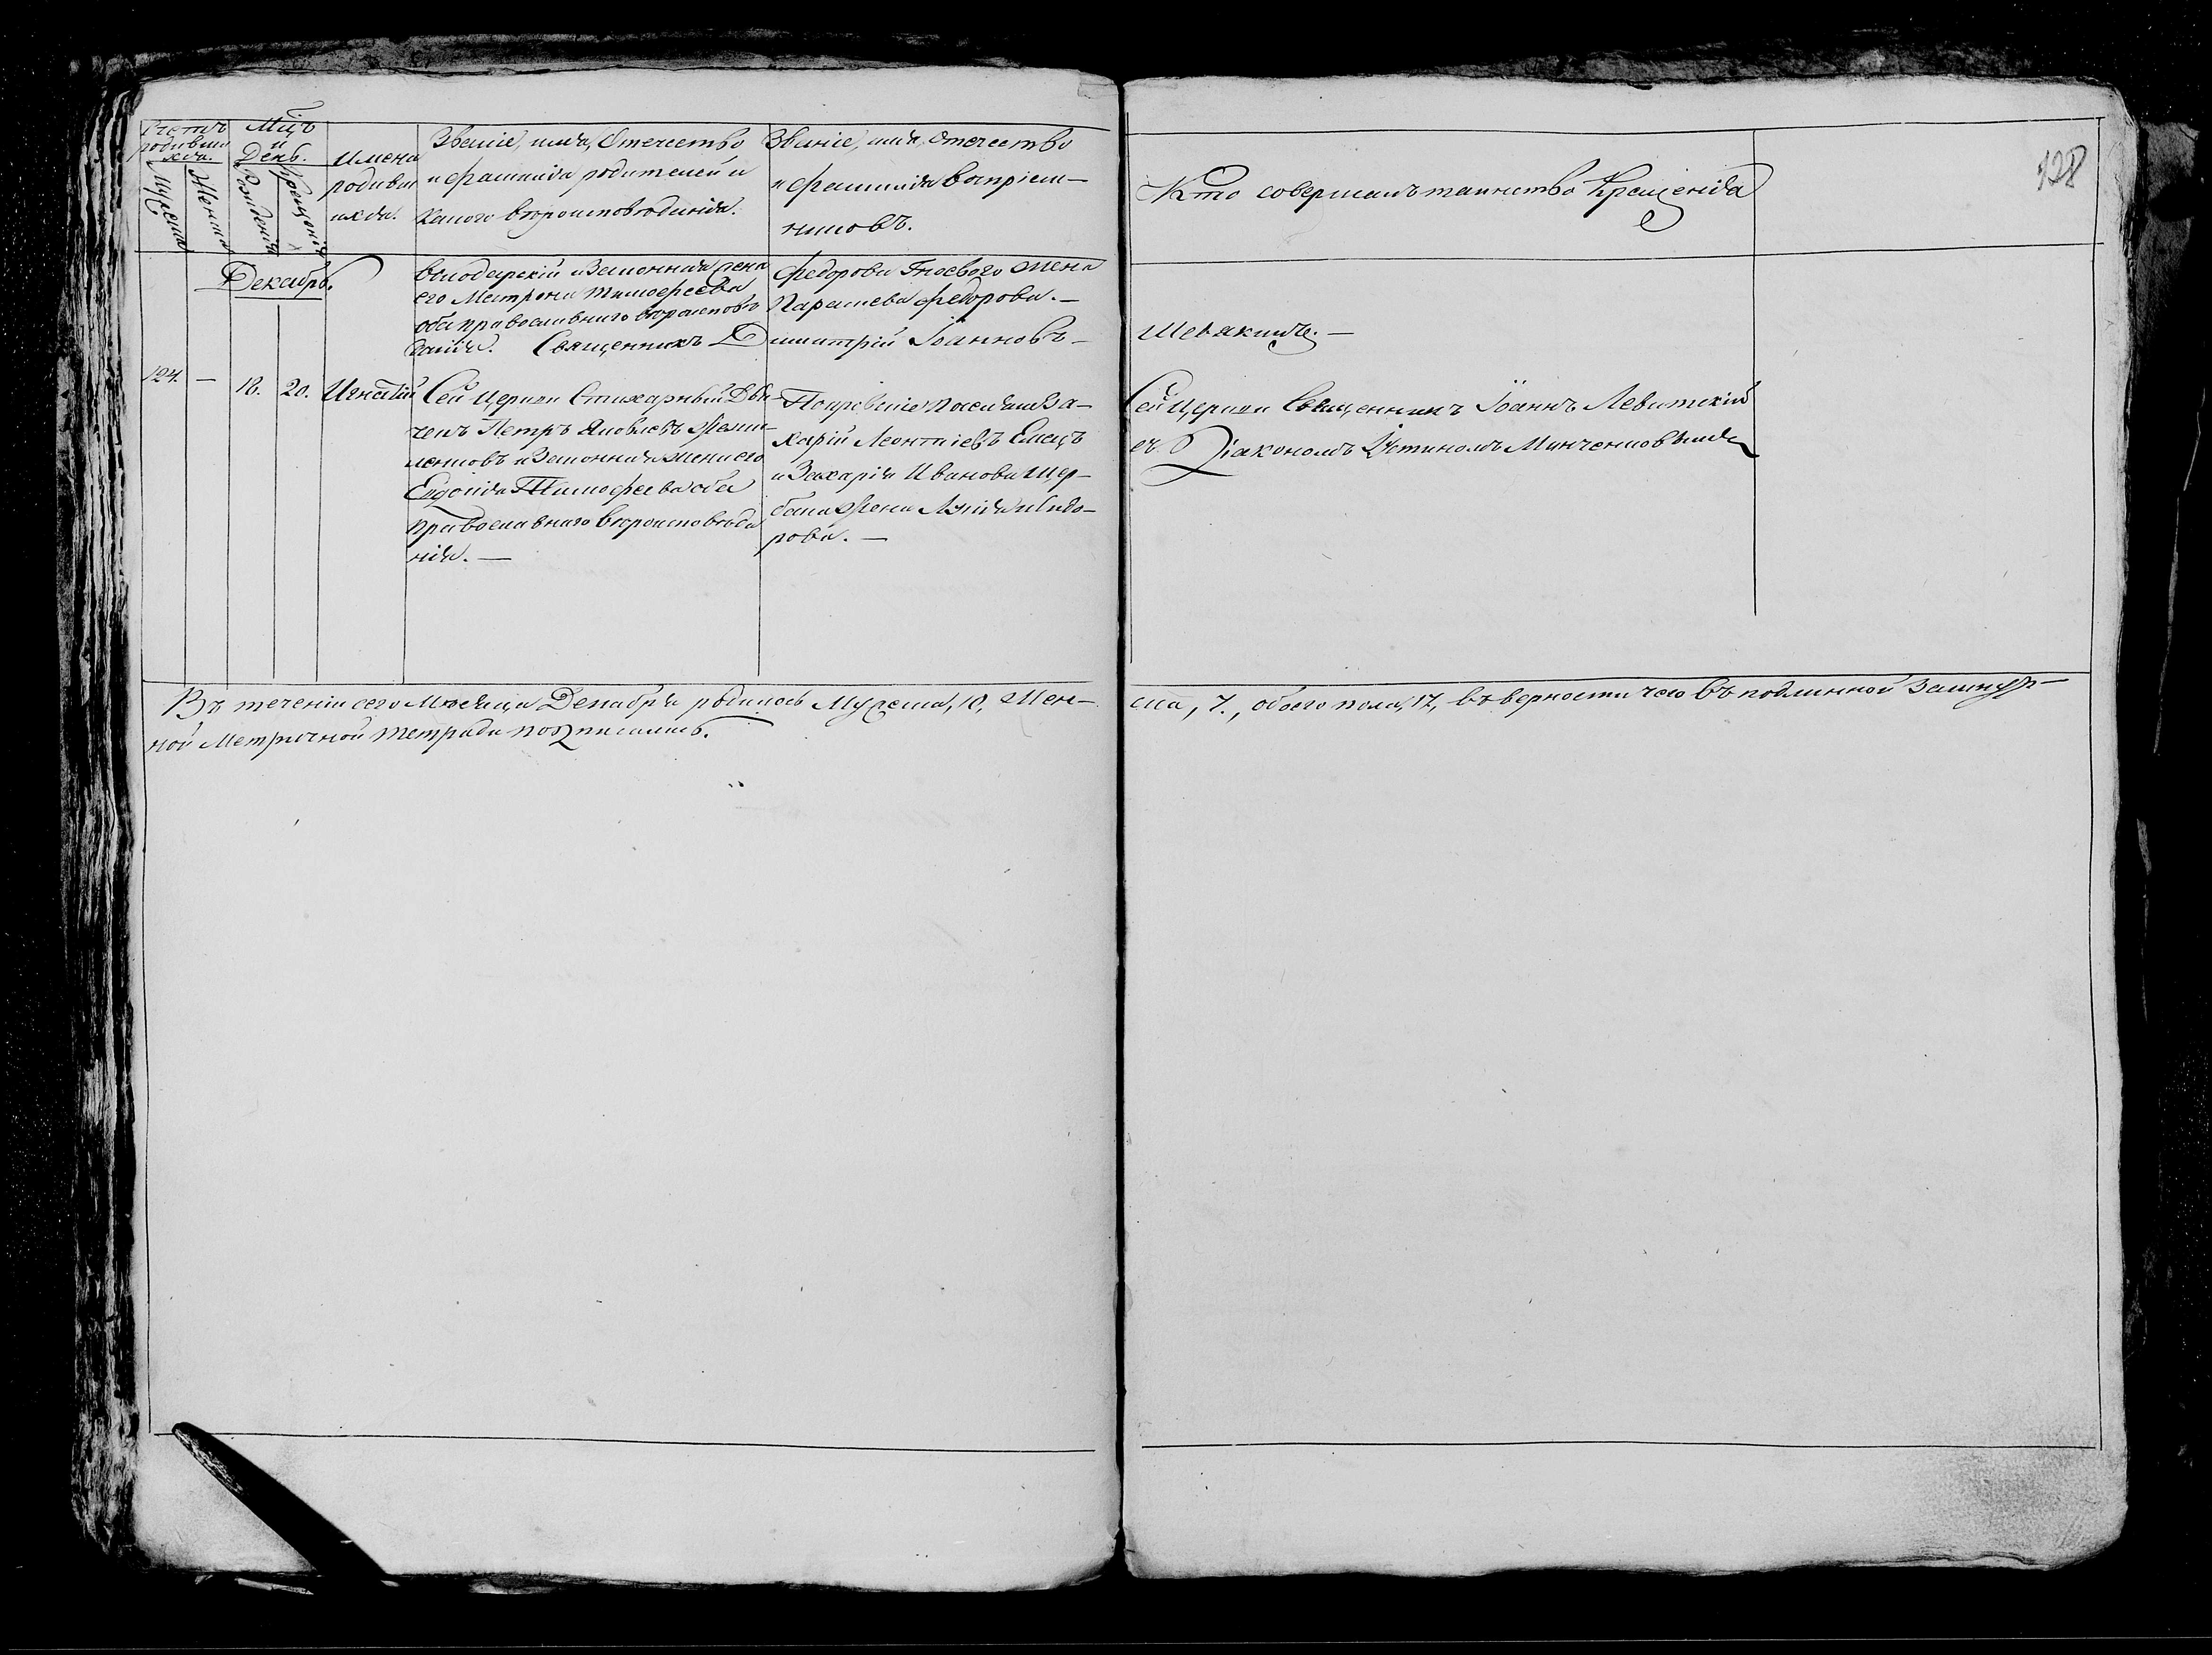 Счетъ родившихся.
Мужеска
Женска
Мцъ и День.
Рождения
Крещенія
Имена
родивш
ихся.
Званіе, имя, Отечество
и фамилія родителей и
какого вѣроисповѣданія.
Званіе, имя, Отечество
и фамилія воспріем-
никовъ.
Кто совершалъ таинство Крещенія
128
Декабрь.
володарскій и Законная жена
его Матрона Тимофеева
оба православнаго вѣроисповѣ
данія. Священникъ Димитрій Іоанновъ
Федорова Гноеваго жена
Параскева Федорова.—
Шевякинъ.—
124. — 18. 20. Игнатій
Сей Церкви Стихарный Дья-
чекъ Петръ Яковлевъ Фели-
и Законная жена его
Евдокія Тимофеева оба
православнаго вѣроисповѣда
нія.—
Захарій Леонтіевъ Емецъ
и Захарія Иванова Щер-
бака жена
рова.—
Сей Церкви Священникъ Іоаннъ Левитскій
съ Діакономъ Устиномъ
Въ теченіи сего Мѣсяца Декабря родилось Мужеска, 10, Жен-
ска, 7., обоего пола, 17, въ верности чего въ подлинной Зашнур-
ной Метричной тетради подписались.